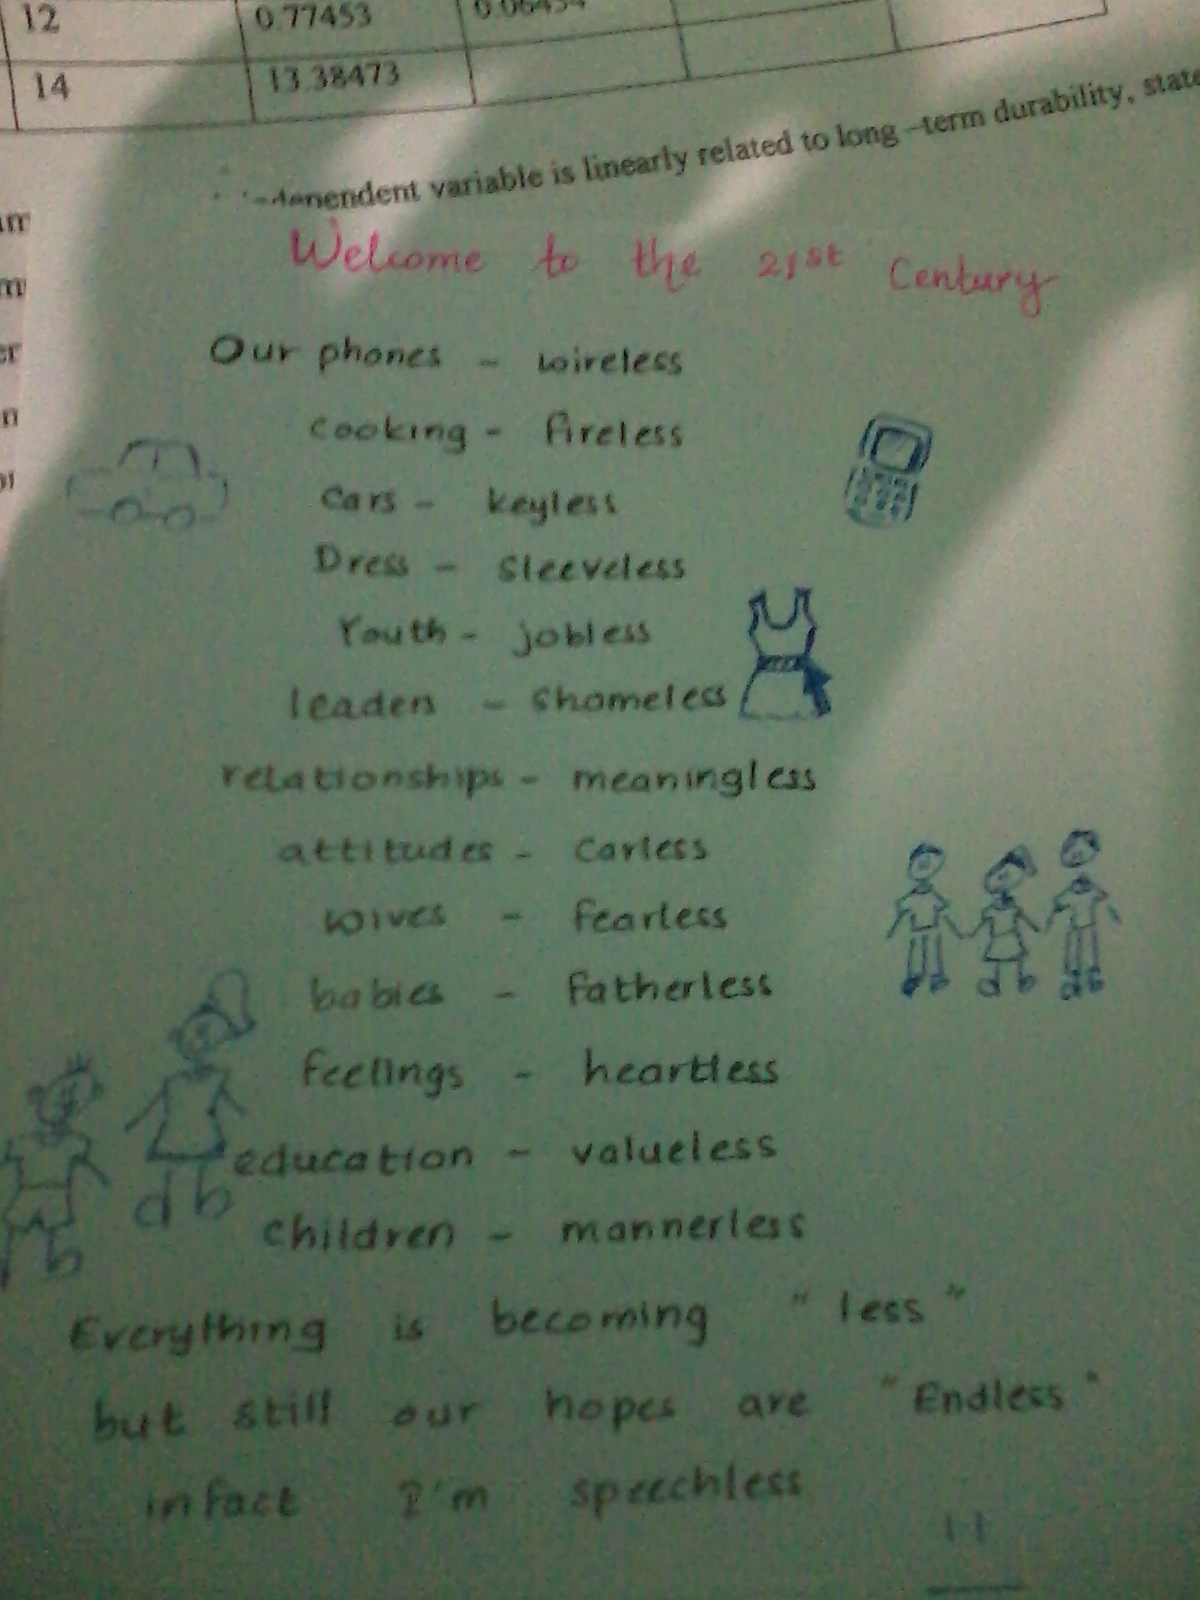 12 0.77453
14 13.38473
variable is linearly related to long -term durability, state
Welcome to the 21st Century
Our phones - wireless
cooking - fireless
Cars - keyless
Dress - sleeveless
Youth - jobless
leaders - Shameless
relationships - meaningless
attitudes - Carless
wives - fearless
babies - fatherless
feelings - heartless
education - valueless
children - mannerless
Everything is becoming " less "
but still our hopes are "Endless"
infact I'm speechless